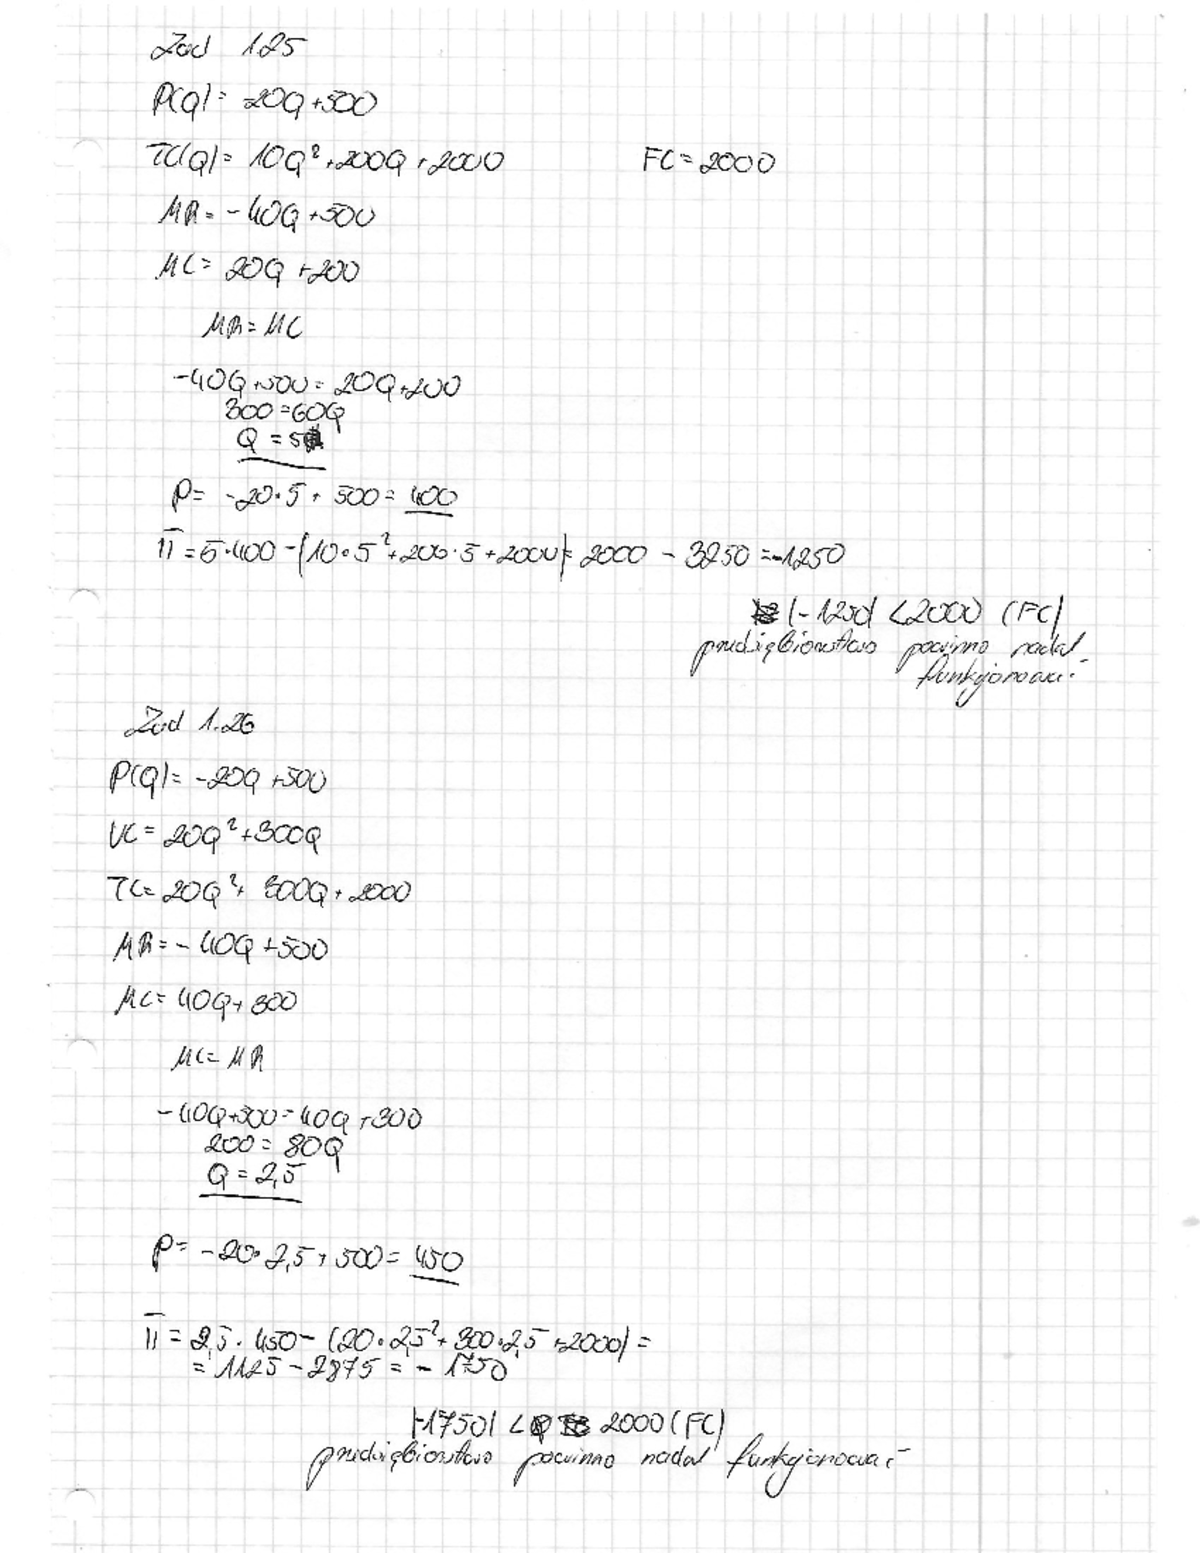 Zad 1.25
P(Q) = -20Q + 500
TC(Q) = 10Q² + 200Q + 2000 FC = 2000
MR = -40Q + 500
MC = 20Q + 200
MR = MC
-40Q + 500 = 20Q + 200
300 = 60Q
Q = 5
P = -20 · 5 + 500 = 400
Π = 5 · 400 - (10 · 5² + 200 · 5 + 2000) = 2000 - 3250 = -1250
|-1250| < 2000 (FC)
przedsiębiorstwo powinno nadal
funkcjonować
Zad 1.26
P(Q) = -20Q + 500
VC = 20Q² + 300Q
TC = 20Q² + 300Q + 2000
MR = -40Q + 500
MC = 40Q + 300
MC = MR
-40Q + 500 = 40Q + 300
200 = 80Q
Q = 2,5
P = -20 · 2,5 + 500 = 450
Π = 2,5 · 450 - (20 · 2,5² + 300 · 2,5 + 2000) =
= 1125 - 2875 = -1750
|-1750| < 2000 (FC)
przedsiębiorstwo powinno nadal funkcjonować